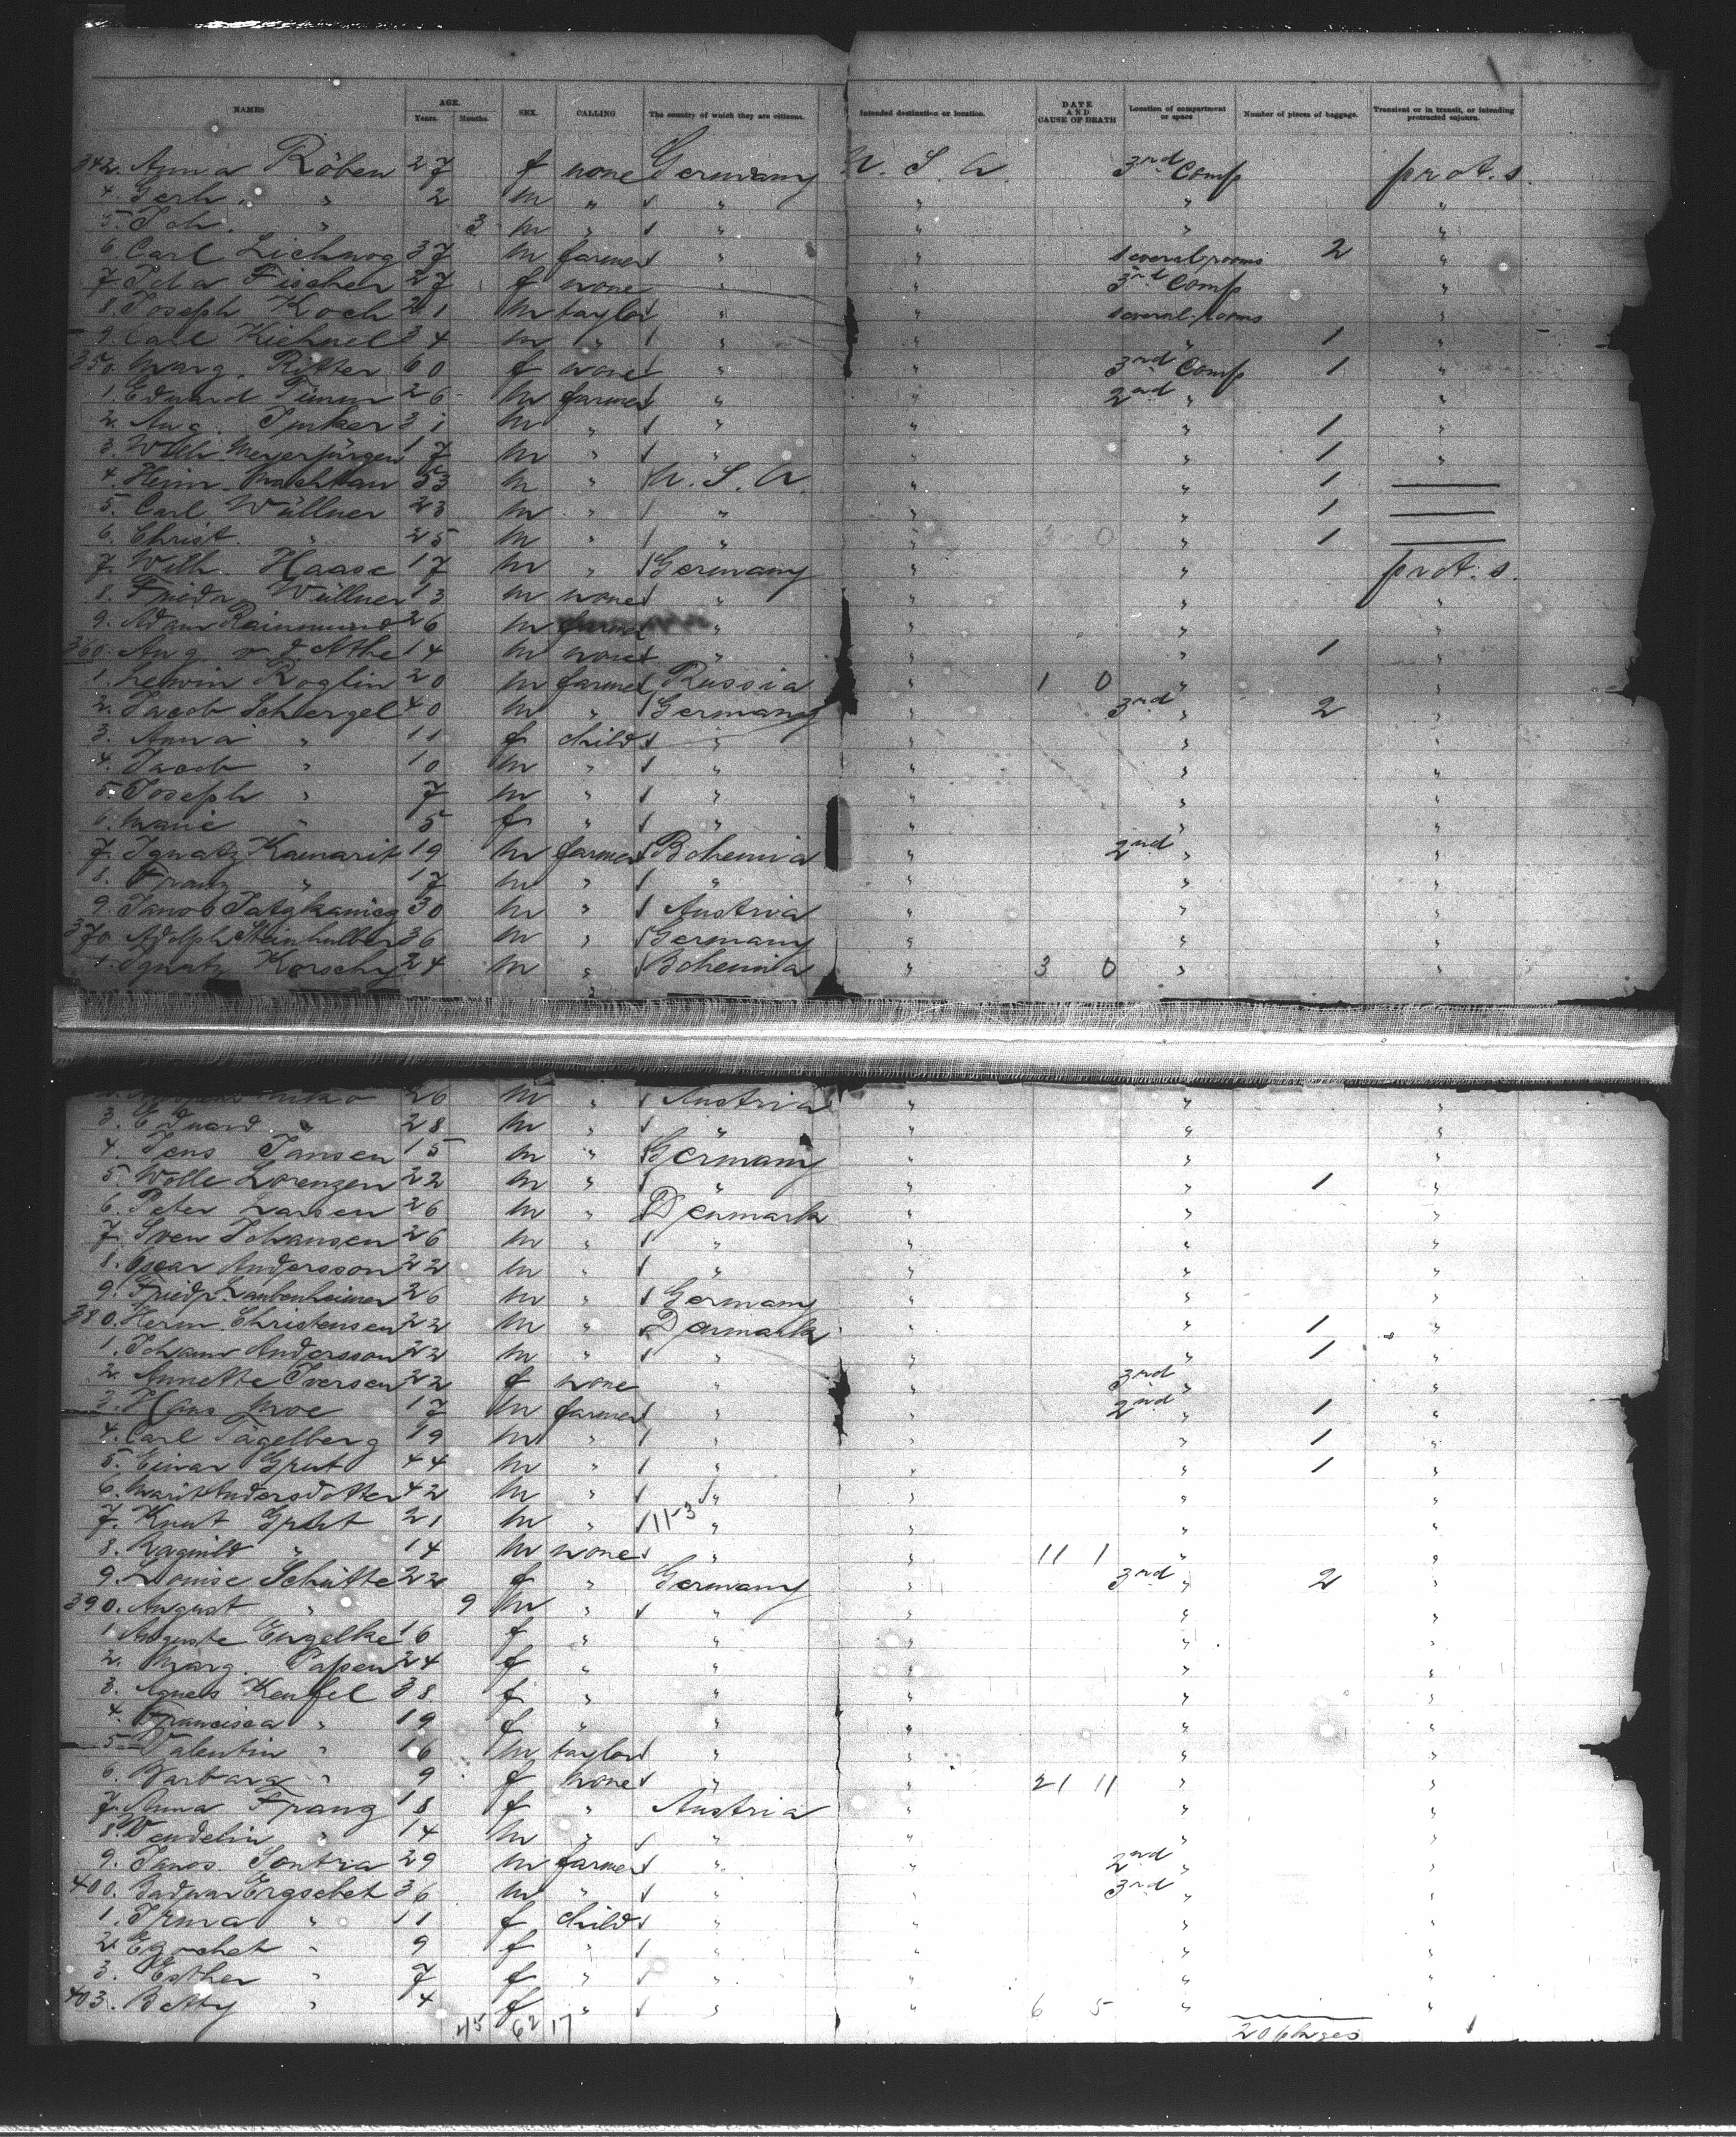 NAMES AGE. Years. Months. SEX. CALLING The country of which they are citizens. Intended destination or location. DATE AND CAUSE OF DEATH Location of compartment or space Number of pieces of baggage. Transient or in transit, or intending protracted sojourn.
342. Anna Röben 27 f none Germany U. S. A. 3rd Comp prot. s.
4. Gerh. " 2 m " " " " "
5. Joh. " 3 m " " " " "
6. Carl 37 m farmer " " several rooms 2 "
7. Ida Fischer 27 f none " " 3rd Comp "
8. Joseph Koch 21 m taylor " " several rooms "
9. Carl Kiehnel 34 m " " " " 1 "
350. Marg. Ritter 60 f none " " 3rd Comp 1 "
1. Eduard Timm 26 m farmer " " 2nd " "
2. Aug. Junker 31 m " " " " 1 "
3. Wilh. Meyerjürgen 17 m " " " " 1 "
4. Heinr. 53 m " U. S. A. " " 1 —
5. Carl Wüllner 23 m " " " " 1 —
6. Christ. " 25 m " " " 3 0 " 1 —
7. Wilh. Haase 17 m " Germany " " prot. s.
8. Friedr. Wüllner 13 m none " " " "
9. Adam Rainmund 26 m farmer " " " "
360. Aug. v. d. Ahe 14 m none " " " 1 "
1. Lewin Roglin 20 m farmer Russia " 1 0 " "
2. Jacob Schergel 40 m " Germany " 3rd " 2 "
3. Anna " 11 f child " " " "
4. Jacob " 10 m " " " " "
5. Joseph " 7 m " " " " "
6. Marie " 5 f " " " " "
7. Ignatz Kamarit 19 m farmer Bohemia " 2nd " "
8. Franz " 17 m " " " " "
9. Janos 30 m " Austria " " "
370. Adolph 36 m " Germany " " "
1. Ignatz Korschy 24 m " Bohemia " 3 0 " "
26 m " Austria " " "
3. Eduard " 28 m " " " " "
4. Jens Jansen 15 m " Germany " " "
5. Wolle Lorenzen 22 m " " " " 1 "
6. Peter Larsen 26 m " Denmark " " "
7. Sven Johansen 26 m " " " " "
8. Oscar Andersson 22 m " " " " "
9. Friedr. Laubenheimer 26 m " Germany " " "
380. Herm. Christensen 22 m " Denmark " " 1 "
1. Johann Andersson 22 m " " " " 1 "
2. Annette Iversen 22 f none " " 3rd " "
3. Hans Moe 17 m farmer " " 2nd " 1 "
4. Carl Tägelberg 19 m " " " " 1 "
5. Einar Grut 44 m " " " " 1 "
6. Marit Andersdotter 42 m " " " " "
7. Knut Grut 21 m " 11-3 " " " "
8. Ragnild " 14 m none " " 11 1 " "
9. Louise Schütte 22 f " Germany " 3rd " 2 "
390. August " 9 m " " " " "
1. Auguste Engelke 16 f " " " " "
2. Marg. Papen 24 f " " " " "
3. Agnes Keufel 38 f " " " " "
4. Francisca " 19 f " " " " "
5. Valentin " 16 m taylor " " " "
6. Barbara " 9 f none " " 21 11 " "
7. Anna Franz 18 f " Austria " " "
8. Wendelin " 14 m " " " " "
9. Janos Sontra 29 m farmer " " 2nd " "
400. Ergsebet 36 m " " " 3rd " "
1. Irma " 11 f child " " " "
2. " 9 f " " " " "
3. Esther " 7 f " " " " "
403. Betty " 4 f " " " 6 5 " "
45 62 17